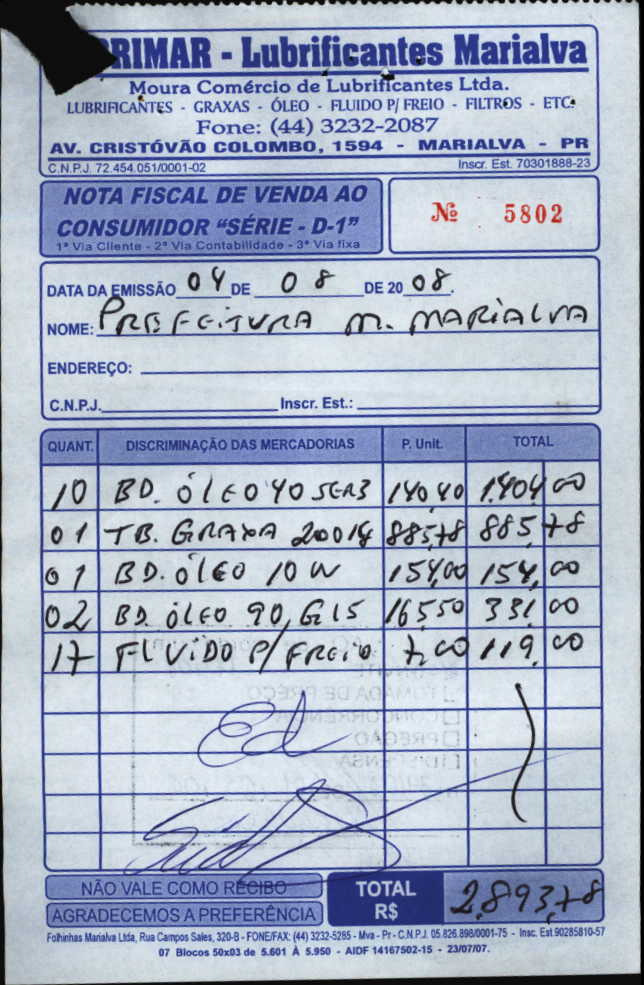 RIMAR - Lubrificantes Marialva
Moura Comércio de Lubrificantes Ltda.
LUBRIFICANTES - GRAXAS - ÓLEO - FLUIDO P/ FREIO - FILTROS - ETC.
Fone: (44) 3232-2087
AV. CRISTÓVÃO COLOMBO, 1594 - MARIALVA - PR
C.N.P.J. 72.454.051/0001-02 Inscr. Est. 70301888-23
NOTA FISCAL DE VENDA AO
CONSUMIDOR "SÉRIE - D-1"
1ª Via Cliente - 2ª Via Contabilidade - 3ª Via fixa
Nº 5802
DATA DA EMISSÃO 04 DE 08 DE 2008.
NOME: PREFEITURA M. MARIALVA
ENDEREÇO:
C.N.P.J. Inscr. Est.:
QUANT. DISCRIMINAÇÃO DAS MERCADORIAS P. Unit. TOTAL
10 BD. ÓLEO 40 SER3 140,40 1.404,00
01 TB. GRAXA 885,78 885,78
01 BD. ÓLEO 10W 154,00 154,00
02 BD. ÓLEO 90, GL5 165,50 331,00
17 FLVIDO P/ FREIO 7,00 119,00
TOMADA DE PREÇO
CONCORRÊNCIA
PREGÃO
DISPENSA
Ed
NÃO VALE COMO RECIBO
AGRADECEMOS A PREFERÊNCIA
TOTAL
R$ 2.893,78
Folhinhas Marialva Ltda, Rua Campos Sales, 320-B - FONE/FAX: (44) 3232-5285 - Mva - Pr - C.N.P.J. 05.826.898/0001-75 - Insc. Est.90285810-57
07 Blocos 50x03 de 5.601 À 5.950 - AIDF 14167502-15 - 23/07/07.